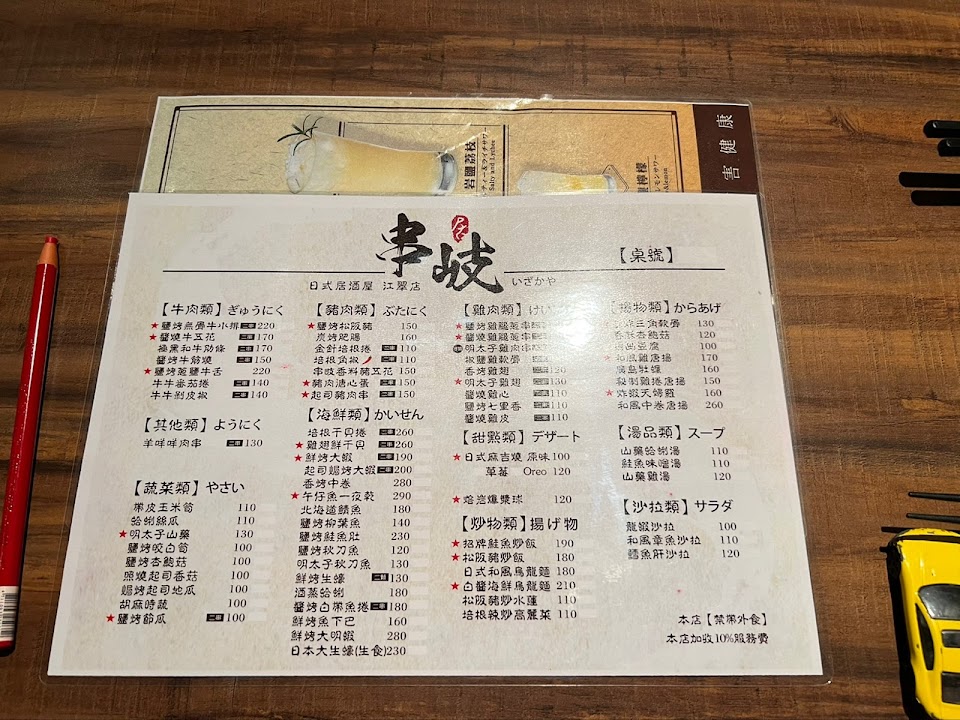 害健康
岩鹽荔枝
ティー&ライチサワー
Salty and Lychee
檸檬
レモンサワー
串岐
日式居酒屋 江翠店
いざかや
【桌號】
【牛肉類】ぎゅうにく
★鹽烤無骨牛小排 二串 220
★醬燒牛五花 二串 170
極黑和牛肋條 二串 170
醬烤牛筋燒 二串 150
★鹽烤蔥鹽牛舌 220
牛牛番茄捲 二串 140
牛牛剝皮椒 二串 140
【其他類】ようにく
羊咩咩肉串 二串 130
【蔬菜類】やさい
帶皮玉米筍 110
蛤蜊絲瓜 110
★明太子山藥 130
鹽烤咬白筍 100
鹽烤杏鮑菇 100
照燒起司香菇 100
焗烤起司地瓜 100
胡麻時蔬 100
★鹽烤節瓜 二串 100
【豬肉類】ぶたにく
★鹽烤松阪豬 150
炭烤肥腸 160
金針培根捲 二串 110
培根角椒 二串 110
串岐香料豬五花 150
★豬肉溏心蛋 二串 150
★起司豬肉串 二串 150
【海鮮類】かいせん
培根干貝捲 二串 260
★雞翅鮮干貝 二串 260
★鮮烤大蝦 二串 190
起司焗烤大蝦 二串 200
香烤中卷 280
★午仔魚一夜乾 290
北海道鯖魚 180
鹽烤柳葉魚 140
鹽烤鮭魚肚 230
鹽烤秋刀魚 120
明太子秋刀魚 130
鮮烤生蠔 二顆 130
酒蒸蛤蜊 180
醬烤白帶魚捲 二串 180
鮮烤魚下巴 160
鮮烤大明蝦 280
日本大生蠔(生食) 230
【雞肉類】
★鹽烤雞腿蔥串
★醬燒雞腿蔥串
明太子雞肉串
椒鹽雞軟骨
香烤雞翅 120
★明太子雞翅 130
醬燒雞心 110
鹽烤七里香 110
醬燒雞皮 110
【甜點類】デザート
★日式麻吉燒 原味 100
草莓 Oreo 120
★焰泡爆漿球 120
【炒物類】揚げ物
★招牌鮭魚炒飯 190
★松阪豬炒飯 180
日式和風烏龍麵 180
★白醬海鮮烏龍麵 210
松阪豬炒水蓮 110
培根辣炒高麗菜 110
【揚物類】からあげ
三角軟骨 130
杏鮑菇 120
豆腐 100
★和風雞唐揚 170
廣島牡蠣 160
秘製雞捲唐揚 150
★炸蝦天婦羅 160
和風中卷唐揚 260
【湯品類】スープ
山藥蛤蜊湯 110
鮭魚味噌湯 110
山藥雞湯 120
【沙拉類】サラダ
龍蝦沙拉 100
和風章魚沙拉 110
鱈魚肝沙拉 120
本店【禁帶外食】
本店加收10%服務費